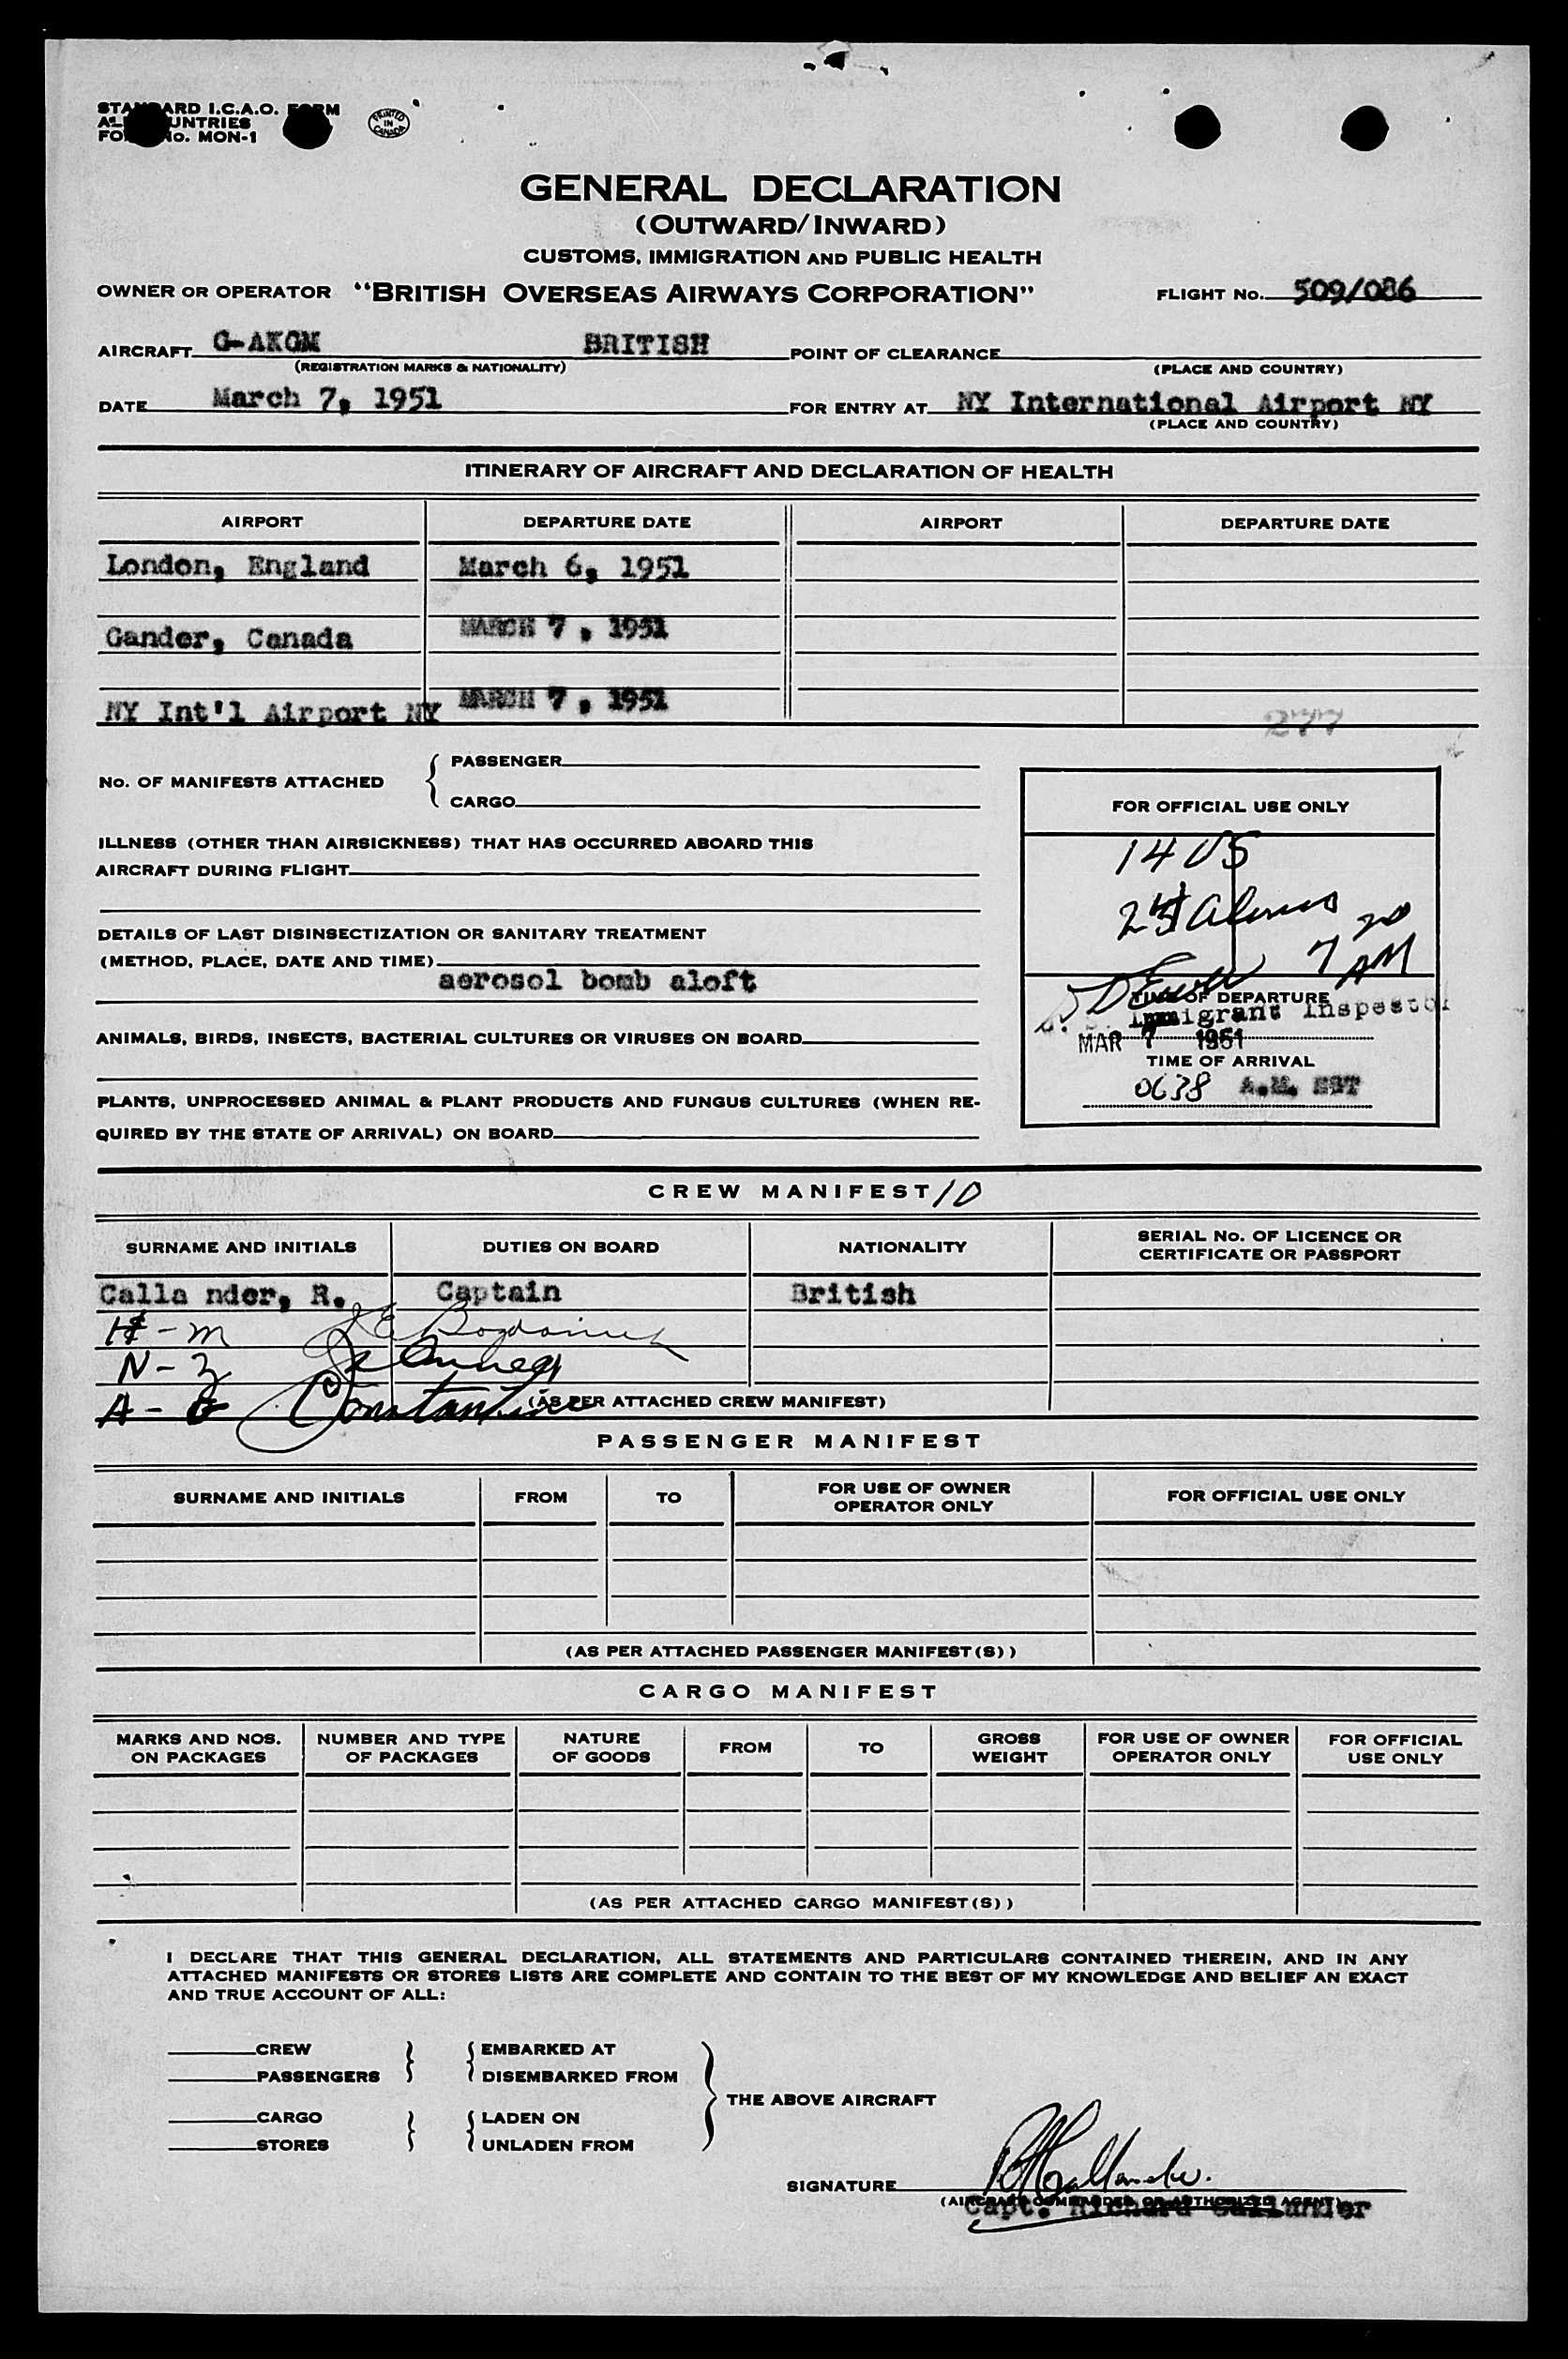 STANDARD I.C.A.O. FORM
ALL COUNTRIES
FORM No. MON-1
PRINTED IN CANADA
GENERAL DECLARATION
(OUTWARD/INWARD)
CUSTOMS, IMMIGRATION AND PUBLIC HEALTH
OWNER OR OPERATOR "BRITISH OVERSEAS AIRWAYS CORPORATION" FLIGHT No. 509/086
AIRCRAFT G-AKGM BRITISH POINT OF CLEARANCE
(REGISTRATION MARKS & NATIONALITY) (PLACE AND COUNTRY)
DATE March 7, 1951 FOR ENTRY AT NY International Airport NY
(PLACE AND COUNTRY)
ITINERARY OF AIRCRAFT AND DECLARATION OF HEALTH
AIRPORT DEPARTURE DATE AIRPORT DEPARTURE DATE
London, England March 6, 1951
Gander, Canada MARCH 7, 1951
NY Int'l Airport NY MARCH 7, 1951
No. OF MANIFESTS ATTACHED { PASSENGER
CARGO
FOR OFFICIAL USE ONLY
14 US
25 Aliens
7 AM
TIME OF DEPARTURE
Immigrant Inspector
MAR 7 1951
TIME OF ARRIVAL
0638 A.M. EST
ILLNESS (OTHER THAN AIRSICKNESS) THAT HAS OCCURRED ABOARD THIS
AIRCRAFT DURING FLIGHT
DETAILS OF LAST DISINSECTIZATION OR SANITARY TREATMENT
(METHOD, PLACE, DATE AND TIME)
aerosol bomb aloft
ANIMALS, BIRDS, INSECTS, BACTERIAL CULTURES OR VIRUSES ON BOARD
PLANTS, UNPROCESSED ANIMAL & PLANT PRODUCTS AND FUNGUS CULTURES (WHEN RE-
QUIRED BY THE STATE OF ARRIVAL) ON BOARD
CREW MANIFEST 10
SURNAME AND INITIALS DUTIES ON BOARD NATIONALITY SERIAL No. OF LICENCE OR
CERTIFICATE OR PASSPORT
Calla nder, R. Captain British
H - M
N - Z
A - G Constantine
(AS PER ATTACHED CREW MANIFEST)
PASSENGER MANIFEST
SURNAME AND INITIALS FROM TO FOR USE OF OWNER
OPERATOR ONLY FOR OFFICIAL USE ONLY
(AS PER ATTACHED PASSENGER MANIFEST(S))
CARGO MANIFEST
MARKS AND NOS.
ON PACKAGES NUMBER AND TYPE
OF PACKAGES NATURE
OF GOODS FROM TO GROSS
WEIGHT FOR USE OF OWNER
OPERATOR ONLY FOR OFFICIAL
USE ONLY
(AS PER ATTACHED CARGO MANIFEST(S))
I DECLARE THAT THIS GENERAL DECLARATION, ALL STATEMENTS AND PARTICULARS CONTAINED THEREIN, AND IN ANY
ATTACHED MANIFESTS OR STORES LISTS ARE COMPLETE AND CONTAIN TO THE BEST OF MY KNOWLEDGE AND BELIEF AN EXACT
AND TRUE ACCOUNT OF ALL:
CREW } { EMBARKED AT
PASSENGERS DISEMBARKED FROM
THE ABOVE AIRCRAFT
CARGO } { LADEN ON
STORES UNLADEN FROM
SIGNATURE R Callander.
(AIRCRAFT COMMANDER OR AUTHORIZED AGENT)
Capt. Richard Callander